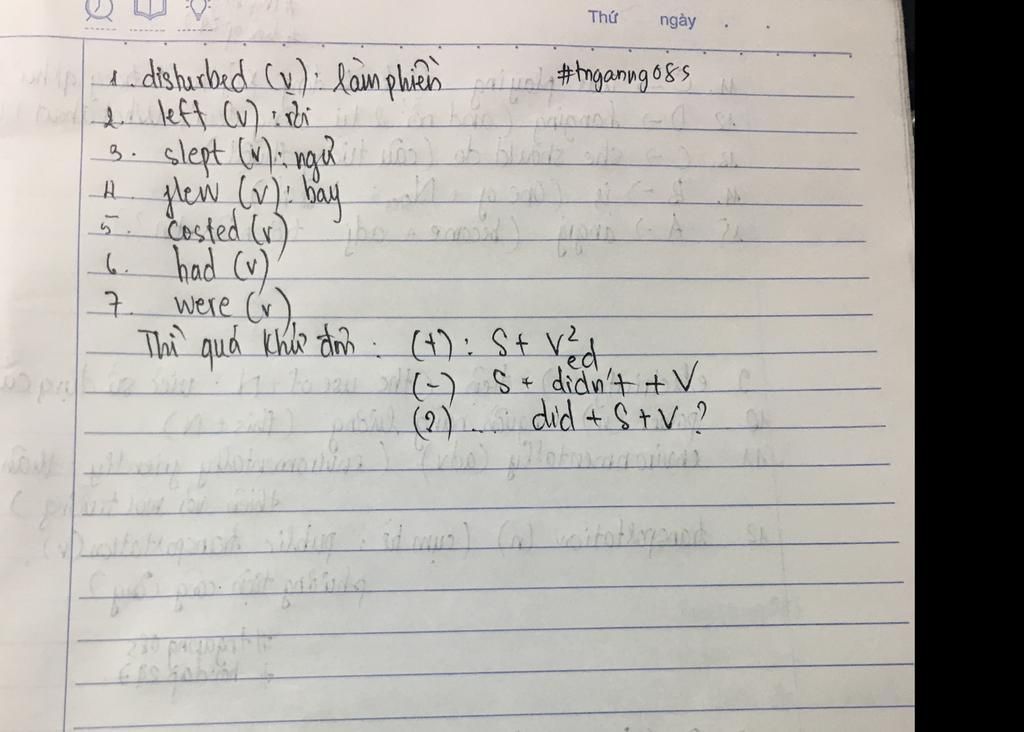 Thứ ngày . .
1. disturbed (v): làm phiền #tnganng085
2. left (v): rời
3. slept (v): ngủ
4. flew (v): bay
5. costed (v)
6. had (v)
7. were (v)
Thì quá khứ đơn: (+): S + V2 ed
(-) S + didn't + V
(?) ... did + S + V?